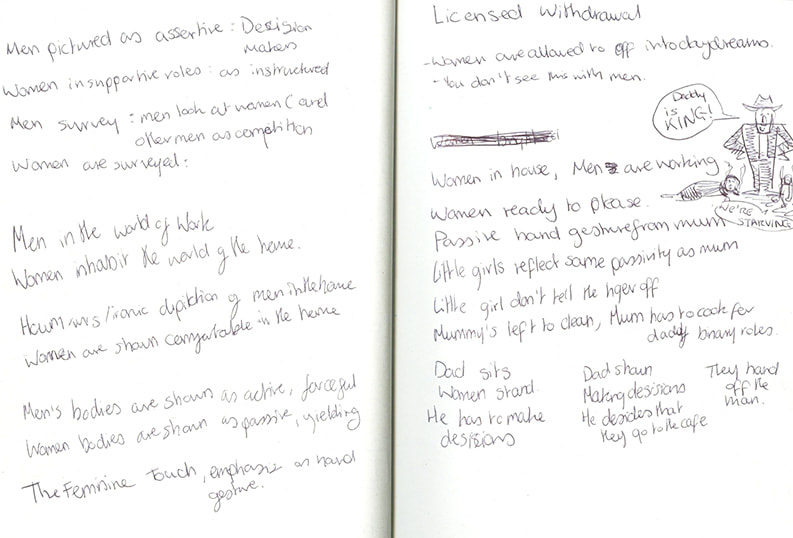 Men pictured as assertive : Desision
makers
Women in supportive roles : as instructured
Men survey : men look at women (and
other men as competition
Women are surveyed :
Men in the world of work
Women inhabit the world of the home.
/ironic dipiction of men in the home
Women are shown comfortable in the home
Men's bodies are shown as active, forceful
Women bodies are shown as passive, yielding
The Feminine Touch, emphasis on hand
gesture.
Licensed Withdrawal
- Women are allowed to off into daydreams.
- You don't see this with men.
Daddy
is
KING!
Women in house, Men are working
Women ready to please.
WE'RE
STARVING
Passive hand gesture from mum
Little girls reflect same passivity as mum
Little girl don't tell the tiger off
Mummy's left to clean, Mum has to cook for
daddy binary roles.
Dad sits
Women stand.
He has to make
desisions
Dad shown
Making desisions
He desides that
they go to the cafe
They hand
off the
man.